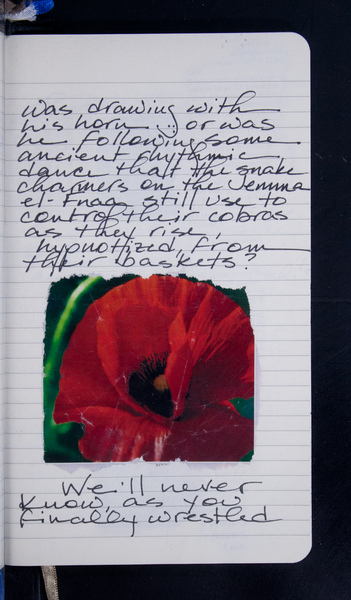 was drawing with
his horn... or was
he following some
ancient rhythmic
dance that the snake
charmers on the Jemma
el-Fnaa still use to
control their cobras
as they rise,
hypnotized, from
their baskets?
We'll never
know, as you
finally wrestled